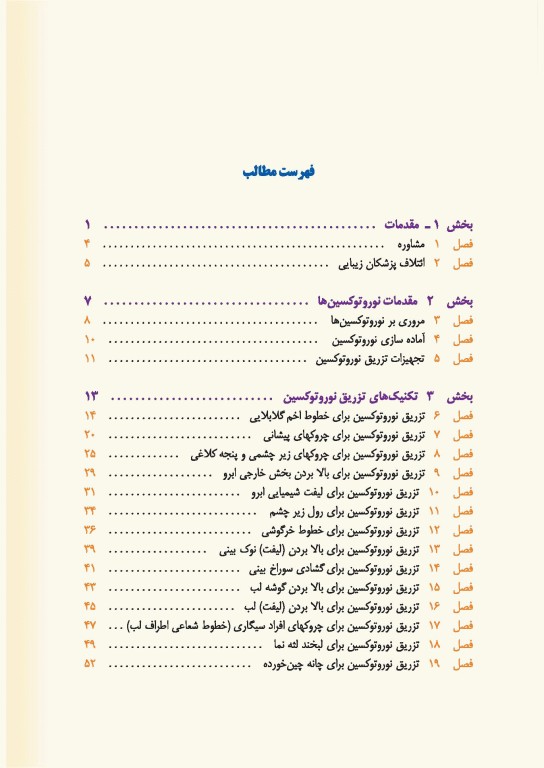 فهرست مطالب
بخش ۱ ـ مقدمات ............................................ ۱
فصل ۱ مشاوره .................................................. ۴
فصل ۲ ائتلاف پزشکان زیبایی ........................................ ۵
بخش ۲ مقدمات نوروتوکسین‌ها ................................. ۷
فصل ۳ مروری بر نوروتوکسین‌ها ...................................... ۸
فصل ۴ آماده سازی نوروتوکسین ..................................... ۱۰
فصل ۵ تجهیزات تزریق نوروتوکسین .................................. ۱۱
بخش ۳ تکنیک‌های تزریق نوروتوکسین .......................... ۱۳
فصل ۶ تزریق نوروتوکسین برای خطوط اخم گلابلایی ....................... ۱۴
فصل ۷ تزریق نوروتوکسین برای چروکهای پیشانی ......................... ۲۰
فصل ۸ تزریق نوروتوکسین برای چروکهای زیر چشمی و پنجه کلاغی ............. ۲۵
فصل ۹ تزریق نوروتوکسین برای بالا بردن بخش خارجی ابرو ................... ۲۹
فصل ۱۰ تزریق نوروتوکسین برای لیفت شیمیایی ابرو ........................ ۳۱
فصل ۱۱ تزریق نوروتوکسین برای رول زیر چشم ........................... ۳۴
فصل ۱۲ تزریق نوروتوکسین برای خطوط خرگوشی .......................... ۳۶
فصل ۱۳ تزریق نوروتوکسین برای بالا بردن (لیفت) نوک بینی .................. ۳۹
فصل ۱۴ تزریق نوروتوکسین برای گشادی سوراخ بینی ........................ ۴۱
فصل ۱۵ تزریق نوروتوکسین برای بالا بردن گوشه لب ........................ ۴۳
فصل ۱۶ تزریق نوروتوکسین برای بالا بردن (لیفت) لب ....................... ۴۵
فصل ۱۷ تزریق نوروتوکسین برای چروکهای افراد سیگاری (خطوط شعاعی اطراف لب) ... ۴۷
فصل ۱۸ تزریق نوروتوکسین برای لبخند لثه نما ............................ ۴۹
فصل ۱۹ تزریق نوروتوکسین برای چانه چین‌خورده .......................... ۵۲